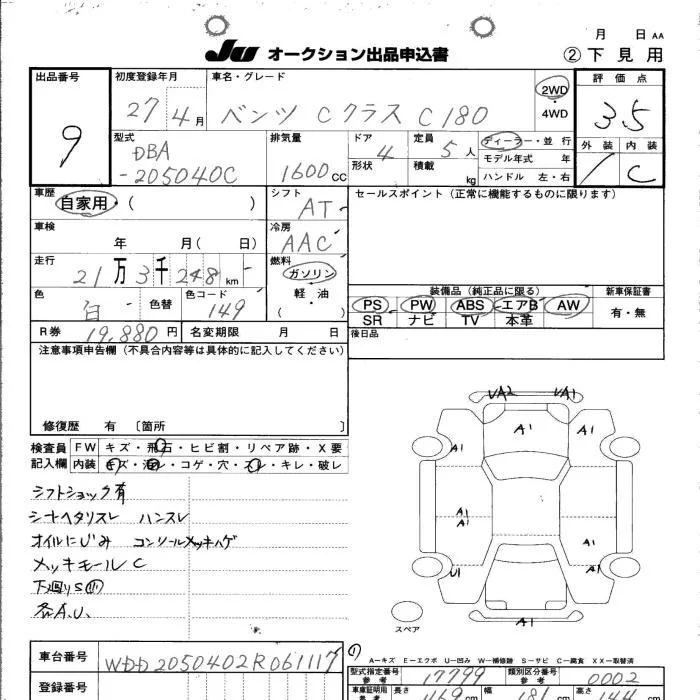 月 日 AA
JU オークション出品申込書 ② 下見用
出品番号 初度登録年月 車名・グレード 評価点
9 27年4月 ベンツ Cクラス C180 2WD・4WD 3.5
型式 排気量 ドア 定員 ディーラー・並行 外装 内装
DBA 4 5人 モデル年式 年 C
-205040C 1600cc 形状 積載 kg ハンドル 左・右
車歴 シフト セールスポイント(正常に機能するものに限ります)
自家用・( ) AT
車検 冷房
年 月( 日) AAC
走行 燃料
21万3千248km ガソリン 装備品(純正品に限る) 新車保証書
色 色替 色コード 軽・油 PS PW ABS エアB AW 有・無
白 149 ( ) SR ナビ TV 本革
R券 19,880円 名変期限 月 日 後日品
注意事項申告欄(不具合内容等は具体的に記入してください)
修復歴 有 〔箇所 〕
検査員 FW キズ・飛石・ヒビ割・リペア跡・X要
記入欄 内装 キズ・汚レ・コゲ・穴・スレ・キレ・破レ
シフトショック有
シートヘタリスレ ハンスレ
オイルにじみ コンソールメッキハゲ
メッキモールC
下廻りS
各A.U.
VA2 VA1
A1 A1
A1
A1
A1
A1
U1 A1
A1
スペア
A-キズ E-エクボ U-凹み W-補修跡 S-サビ C-腐食 XX-取替済
車台番号 WDD2050402R061117
型式指定番号 17799 類別区分番号 0002
参考 参考
登録番号 車車証明用 長さ 469cm 幅 181cm 高さ 144